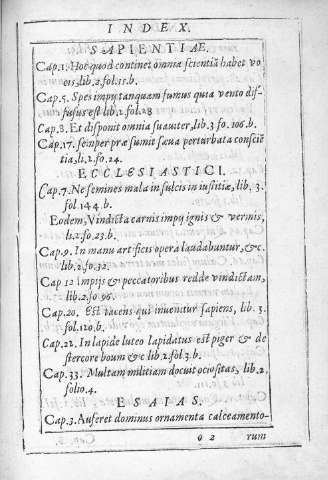 INDEX.
SAPIENTIAE.
Cap. 1. Hoc quod continet omnia scientiā habet vo
cis, lib. 2. fol. 15. b.
Cap. 5. Spes impij tanquam fumus quia vento dif-
fusus est lib. 2. fol. 28
Cap. 8. Et disponit omnia suauiter, lib. 3 fo. 106. b.
Cap. 17. semper præsumit sæua perturbata consciē
tia, li. 2. fo. 24.
ECCLESIASTICI.
Cap. 7. Ne semines mala in sulcis in iustitiæ, lib. 3.
fol. 144. b.
Eodem, Vindicta carnis impij ignis & vermis,
li. 2. fo. 23. b.
Cap. 9. In manu artificis opera laudabuntur, &c.
lib. 2. fo. 32.
Cap 12 impijs & peccatoribus redde vindictam,
lib. 2. fo 96.
Cap. 20. Est tacens qui inuenitur sapiens, lib. 3.
fol. 120. b.
Cap. 22. In lapide luteo lapidatus est piger & de
stercore boum &c lib. 2. fol. 3. b.
Cap. 33. Multam militiam docuit ociositas, lib. 2.
folio. 4.
ESAIAS.
Cap. 3. Auferet dominus ornamenta calceamento-
Q 2 rum